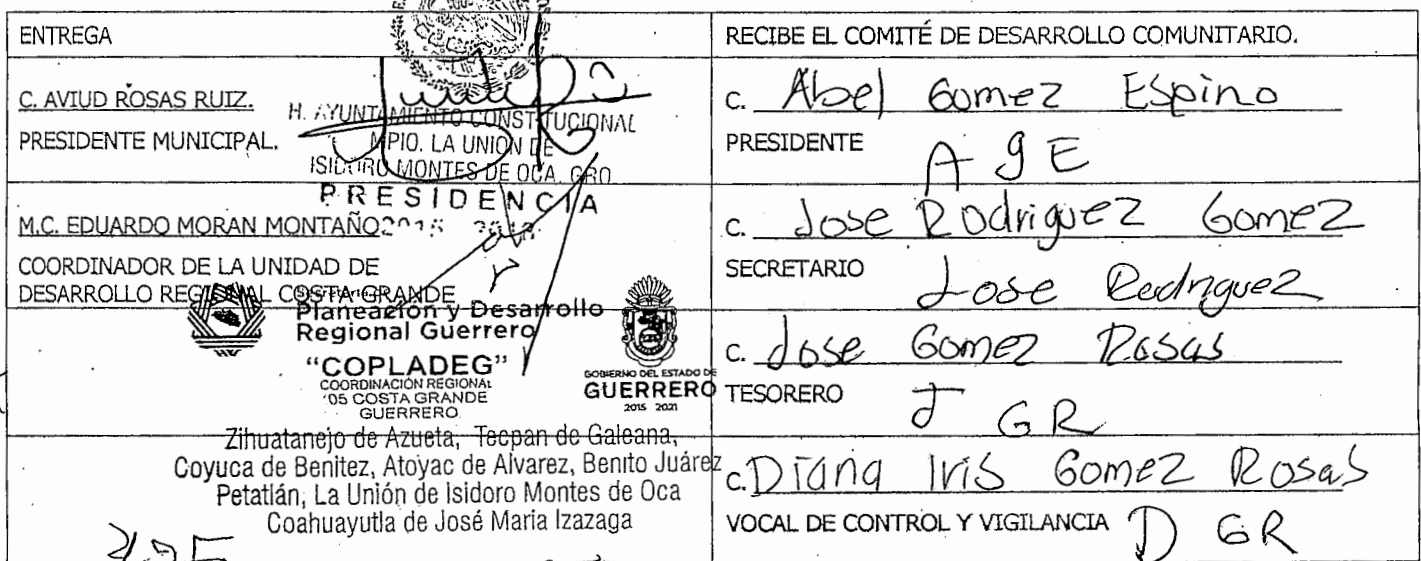 ENTREGA
C. AVIUD ROSAS RUIZ.
PRESIDENTE MUNICIPAL.
H. AYUNTAMIENTO CONSTITUCIONAL
MPIO. LA UNION DE
ISIDORO MONTES DE OCA, GRO
PRESIDENCIA
M.C. EDUARDO MORAN MONTAÑO
COORDINADOR DE LA UNIDAD DE
DESARROLLO REGIONAL COSTA GRANDE
Planeación y Desarrollo
Regional Guerrero
"COPLADEG"
COORDINACIÓN REGIONAL
05 COSTA GRANDE
GUERRERO
GOBIERNO DEL ESTADO DE
GUERRERO
2015 2021
Zihuatanejo de Azueta, Tecpan de Galeana,
Coyuca de Benitez, Atoyac de Alvarez, Benito Juárez
Petatlán, La Unión de Isidoro Montes de Oca
Coahuayutla de José Maria Izazaga
RECIBE EL COMITÉ DE DESARROLLO COMUNITARIO.
C. Abel Gomez Espino
PRESIDENTE
A g E
C. Jose Rodriguez Gomez
SECRETARIO
Jose Rodriguez
C. Jose Gomez Rosas
TESORERO
J GR
C. Diana Iris Gomez Rosas
VOCAL DE CONTROL Y VIGILANCIA
D GR